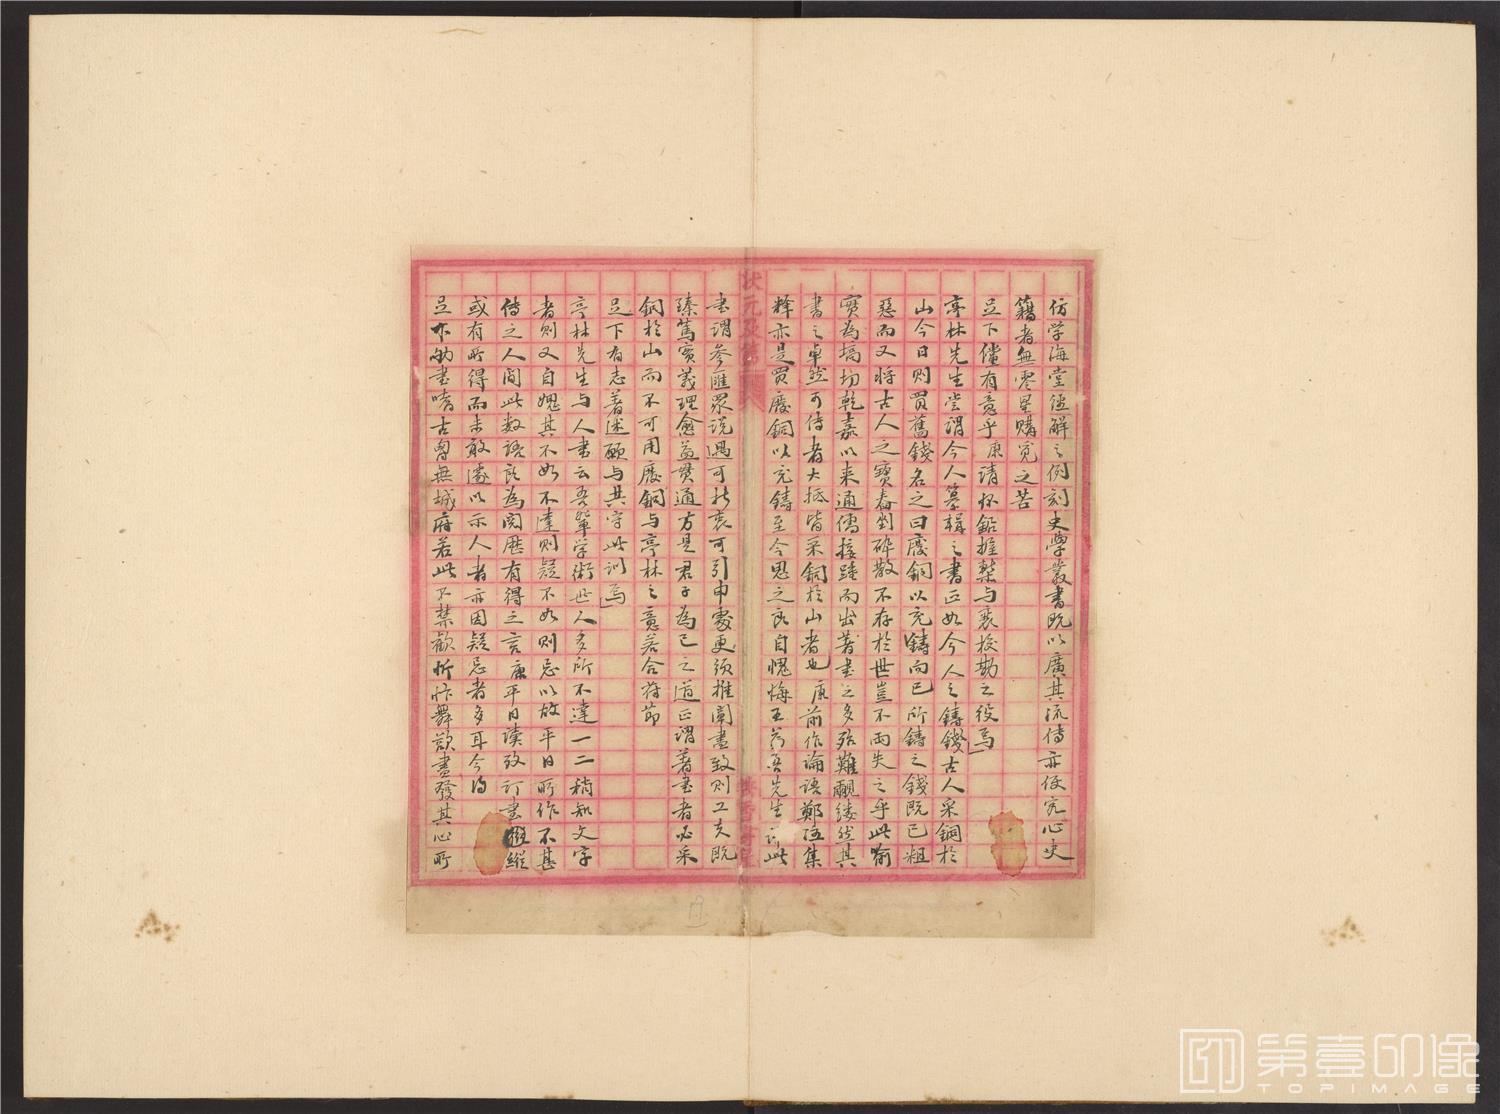 仿學海堂經解之例刻史學叢書既以廣其流傳亦使究心史
籍者無零星購覓之苦
足下儻有意乎康請怀鉛握槧與裹校勘之役焉
亭林先生嘗謂今人纂輯之書正如今人之鑄錢古人采銅於
山今日則買舊錢名之曰廢銅以充鑄向已所鑄之錢既已粗
惡而又將古人之寶舂剉碎散不存於世豈不兩失之乎此喻
實為搞切乾嘉以來通儒接踵而出著書之多殆難覼縷然其
書之卓然可傳者大抵皆采銅於山者也康前作論語鄭注集
釋亦是買廢銅以充鑄至今思之良自愧悔至若吾先生此
書謂參匯眾說遇可折衷可引申處更須推闡盡致則工夫既
臻篤實義理愈益貫通方是君子為己之道正謂著書者必采
銅於山而不可用廢銅與亭林之意若合符節
足下有志著述願與共守此訓焉
亭林先生與人書云吾輩學術世人多所不達一二稍知文字
者則又自媿其不如不達則疑不如則忌以故平日所作不甚
傳之人間此數語良為閱歷有得之言康平日讀孜訂書縱
或有所得而未敢遽以示人者亦因疑忌者多耳今得
足下吶書嗜古胷無城府若此不禁歡忻忭舞欲盡發其心所
狀元及第
第壹印像
TOPIMAGE